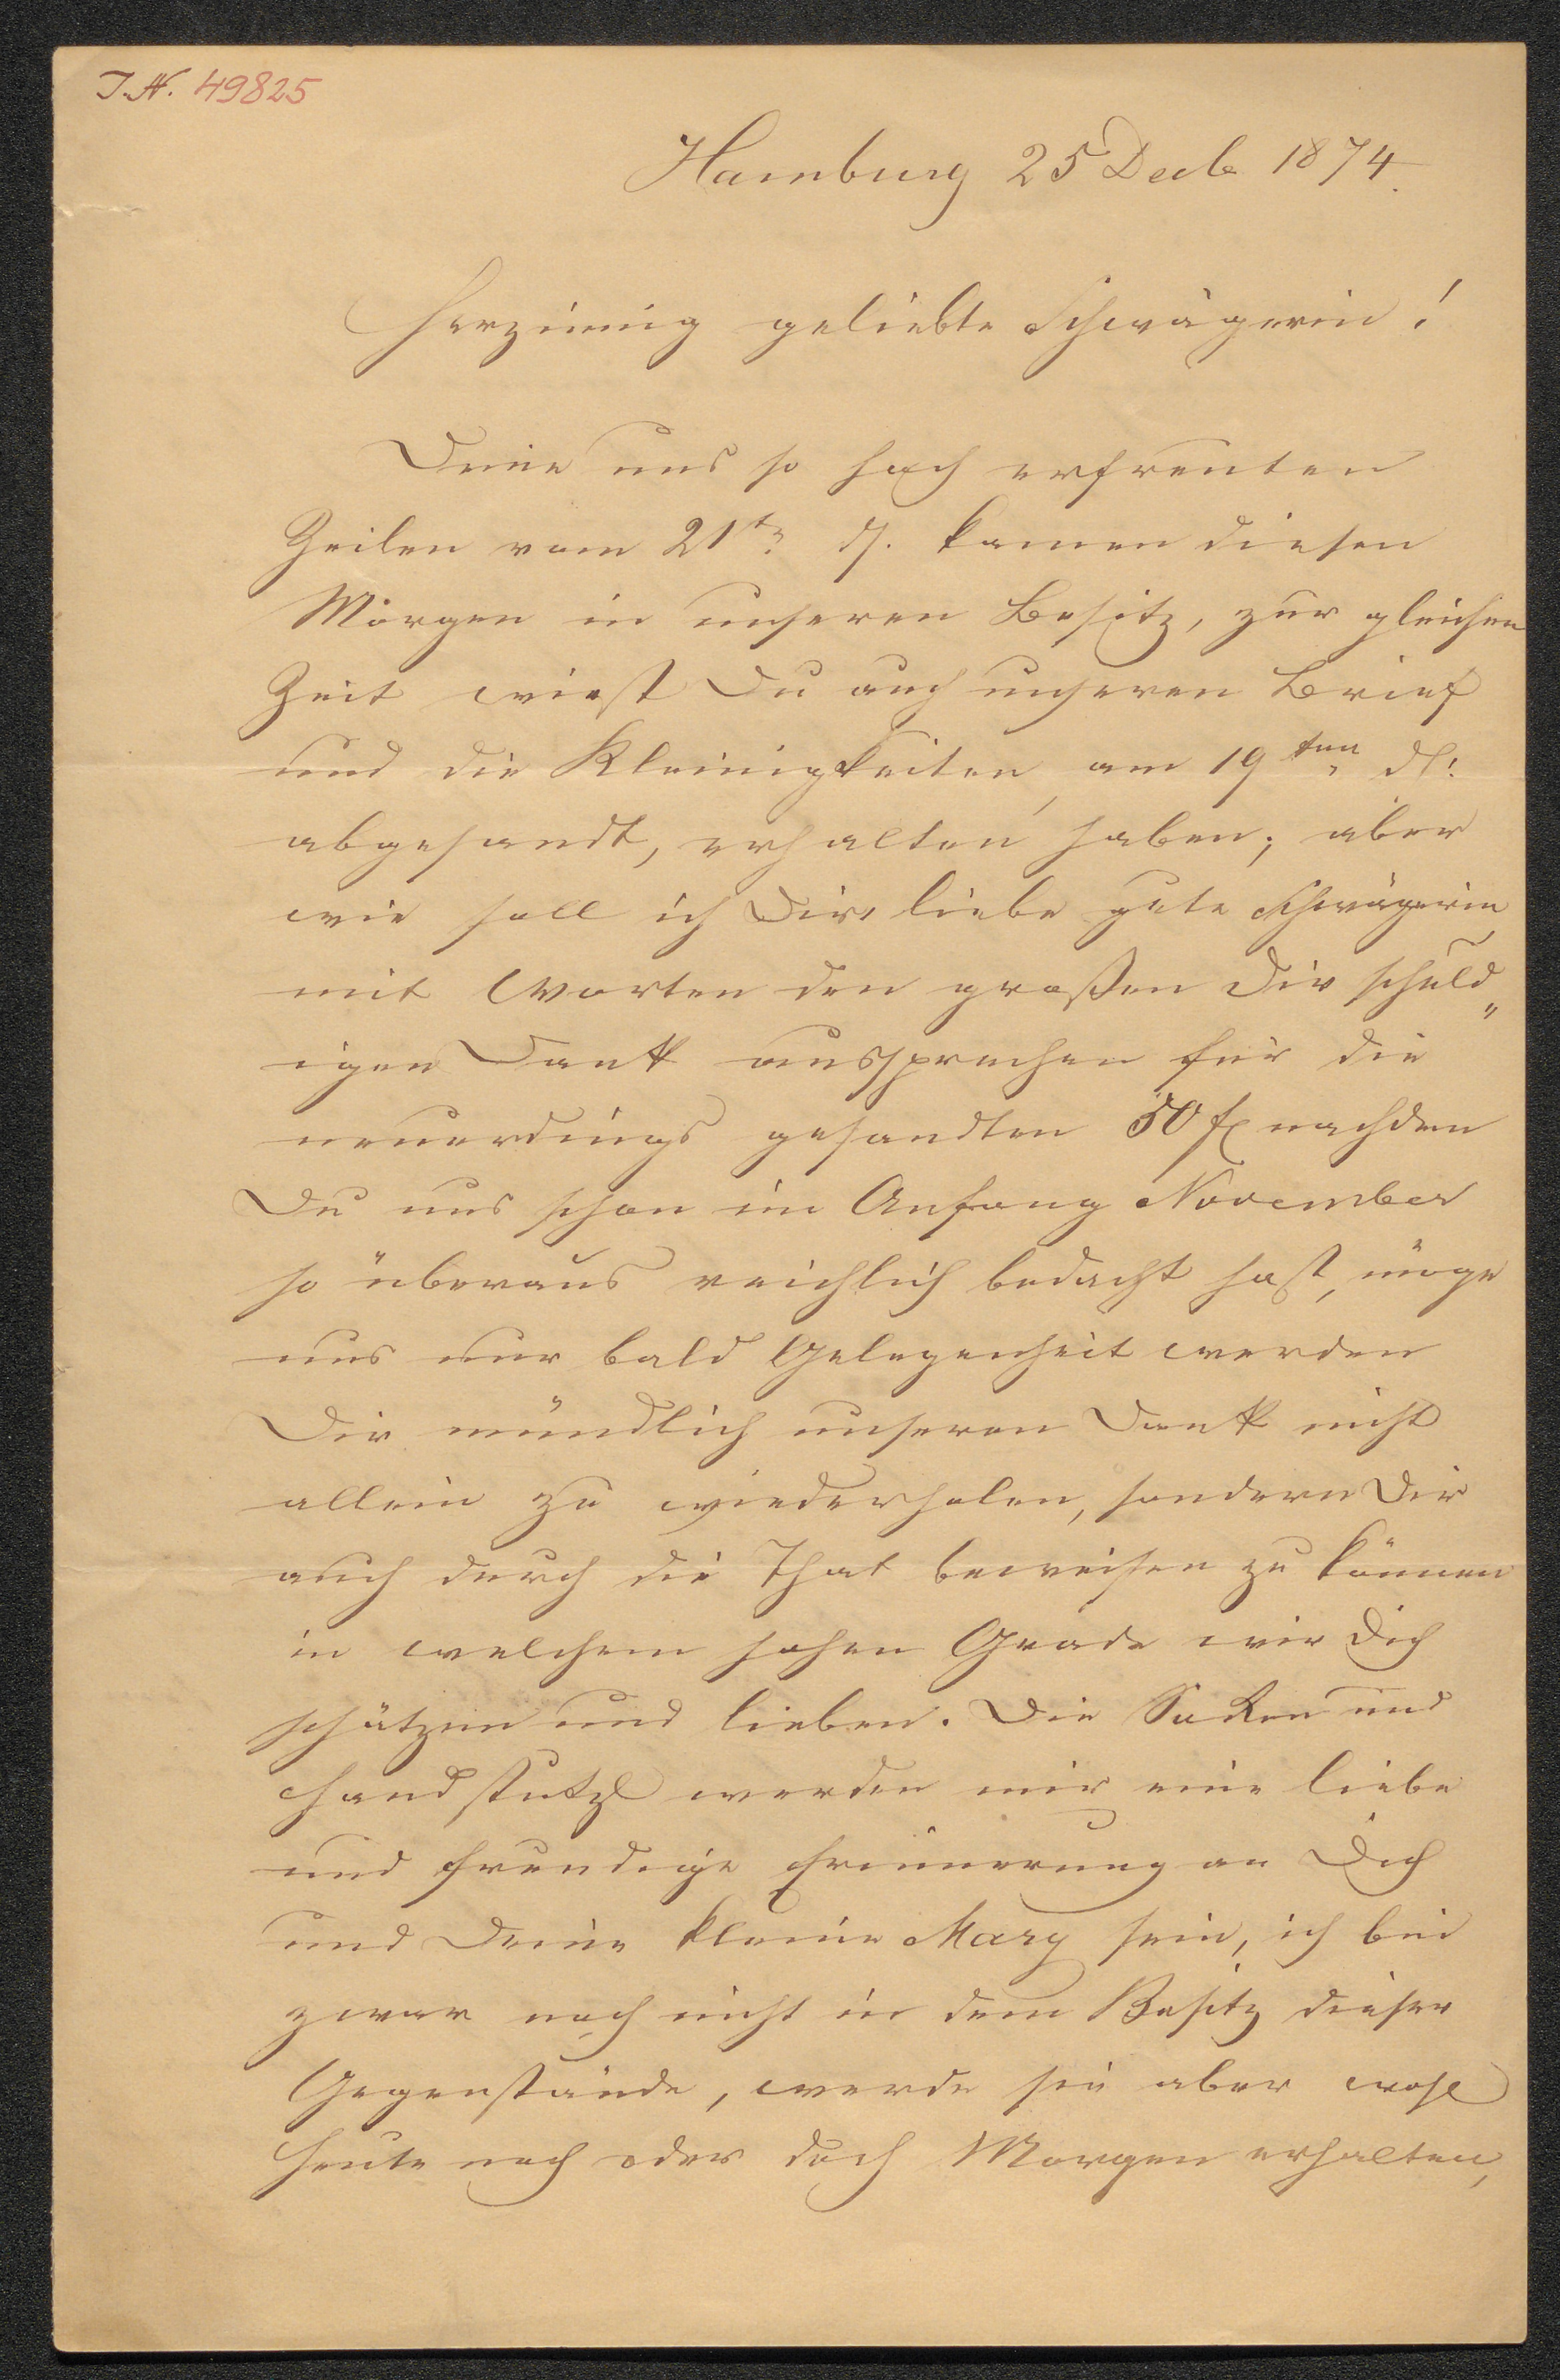 I.N. 49825
Hamburg 25 Decb 1874.
Herzinnig geliebte Schwägerin!
Deine uns so hoch erfreuten
Zeilen vom 21t. ds. kamen diesen
Morgen in unseren Besitz, zur gleichen
Zeit wirst Du auch unseren Brief
und die Kleinigkeiten, am 19ten ds.
abgesandt, erhalten haben; aber
wie soll ich Dir, liebe gute Schwägerin
mit Worten den großen Dir schuld„
igen Dank aussprechen für die
neuerdings gesandten 50 f nachdem
Du uns schon im Anfang November
so überaus reichlich bedacht hast, möge
uns nur bald Gelegenheit werden
Dir mündlich unseren Dank nicht
allein zu wiederholen, sondern Dir
auch durch die That beweisen zu können
in welchem hohen Grade wir Dich
schätzen und lieben. Die Socken und
Handstutzl werden mir eine liebe
und freudige Erinnerung an Dich
und Deine kleine Mary sein, ich bin
zwar noch nicht in dem Besitz dieser
Gegenstände, werde sie aber wohl
heute noch oder doch Morgen erhalten,